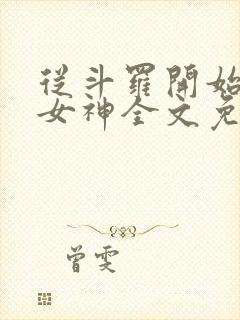 從斗羅開始
女神全文免
曾雯